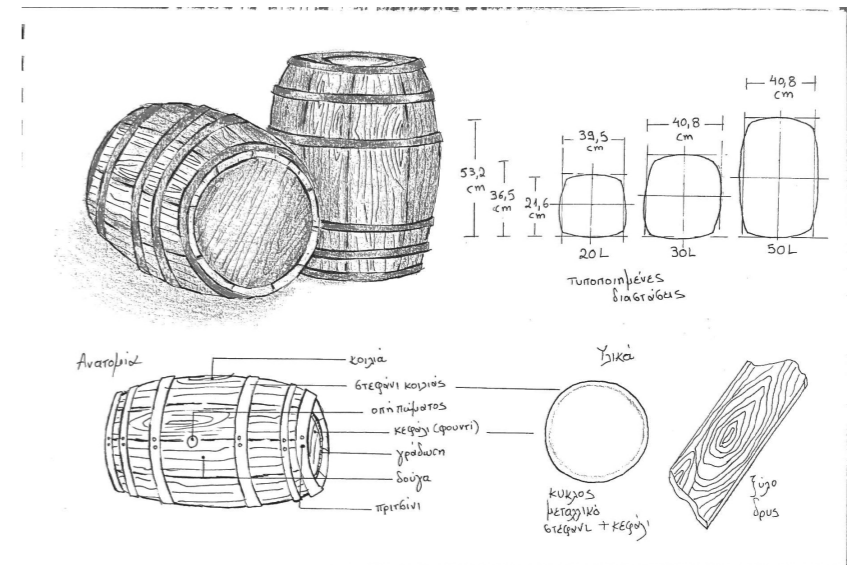 40,8
cm
40,8
cm
39,5
cm
53,2
cm
36,5
cm
21,6
cm
20L
30L
50L
Τυποποιημένες
διαστάσεις
Ανατομία
κοιλιά
στεφάνι κοιλιάς
οπή πώματος
κεφάλι (φουντί)
γράδωση
δούγα
πριτσίνι
Υλικά
κύκλος
μεταλλικό
στεφάνι + κεφάλι
ξύλο
δρυς